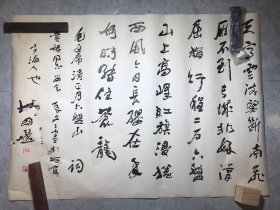 天高雲淡望斷南飛
雁不到長城非好漢
屈指行程二万六盤
山上高峰紅旗漫捲
西風今日長纓在手
何時縛住蒼龍
毛主席清平乐六盘山 词
同志
上海人也